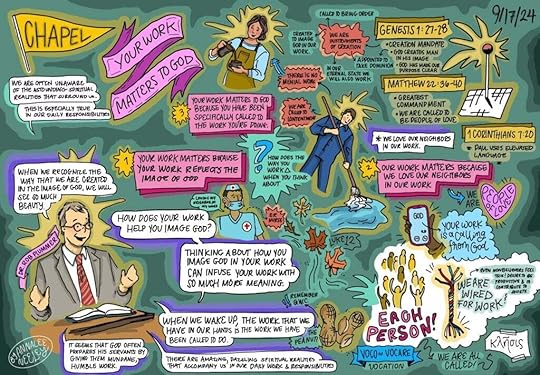 CHAPEL
YOUR WORK
MATTERS TO GOD
9/17/24
WE ARE OFTEN UNAWARE
OF THE ASTOUNDING SPIRITUAL
REALITIES THAT SURROUND US.
THIS IS ESPECIALLY TRUE IN
OUR DAILY RESPONSIBILITIES
CALLED TO BRING ORDER
CREATED
TO IMAGE
GOD IN OUR
WORK.
WE ARE
INSTRUMENTS
OF CREATION
APPOINTED TO
TAKE DOMINION
IN OUR
ETERNAL STATE WE
WILL ALSO WORK
THERE IS NO
MENIAL WORK
GENESIS 1:27-28
CREATION MANDATE
GOD CREATES MAN
IN HIS IMAGE
GOD HAS MADE OUR
PURPOSE CLEAR
MATTHEW 22:36-40
GREATEST
COMMANDMENT
WE ARE CALLED TO
BE PEOPLE OF LOVE
1 CORINTHIANS 7:20
PAUL USES ELEVATED
LANGUAGE
WE LOVE OUR NEIGHBORS
IN OUR WORK.
YOUR WORK MATTERS TO GOD
BECAUSE YOU HAVE BEEN
SPECIFICALLY CALLED TO
THE WORK YOU'RE DOING.
WE ARE
CALLED TO
CONTENTMENT
1
YOUR WORK MATTERS BECAUSE
YOUR WORK REFLECTS THE
IMAGE OF GOD
HOW DOES THE
WAY YOU
WORK
WHEN YOU THINK
ABOUT
2
OUR WORK MATTERS BECAUSE
WE LOVE OUR NEIGHBORS
IN OUR WORK
WE ARE
PEOPLE
OF LOVE!
WHEN WE RECOGNIZE THE
WAY THAT WE ARE CREATED
IN THE IMAGE OF GOD, WE WILL
SEE SO MUCH
BEAUTY.
DR. ROB PLUMMER
HOW DOES YOUR WORK
HELP YOU IMAGE GOD?
THINKING ABOUT HOW YOU
IMAGE GOD IN YOUR WORK
CAN INFUSE YOUR WORK WITH
SO MUCH MORE MEANING.
LUKE 12
GOD
YOUR WORK
IS A calling
from God
EVEN NONBELIEVERS FEEL
WE ARE
WIRED FOR
WORK!
EACH
PERSON!!
REMEMBER
THE
PEANUT!
WHEN WE WAKE UP, THE WORK THAT WE
HAVE IN OUR HANDS IS THE WORK WE HAVE
BEEN CALLED TO DO.
IT SEEMS THAT GOD OFTEN
PREPARES HIS SERVANTS BY
GIVING THEM MUNDANE,
HUMBLE WORK.
THERE ARE AMAZING, DAZZLING SPIRITUAL REALITIES
THAT ACCOMPANY US IN OUR DAILY WORK & RESPONSIBILITIES
VOCO VOCARE
VOCATION
WE ARE ALL
CALLED!
κλῆσις